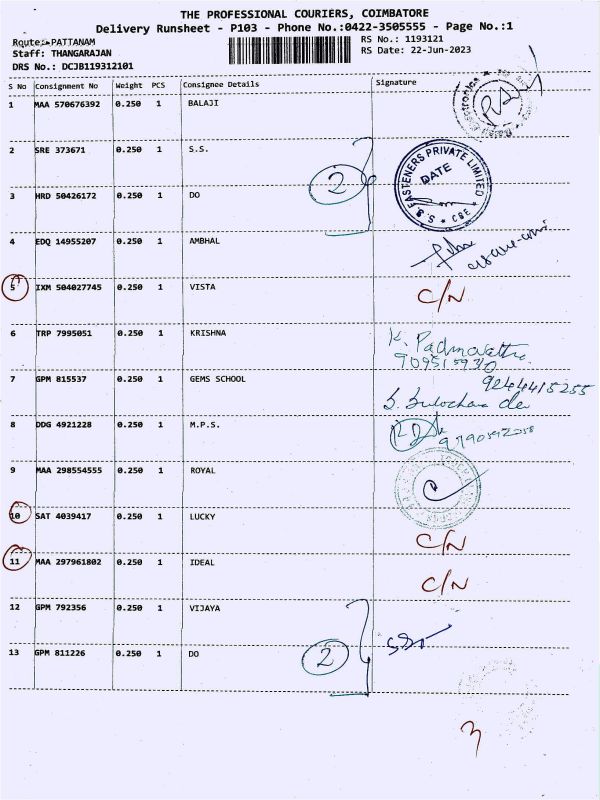 THE PROFESSIONAL COURIERS, COIMBATORE
Delivery Runsheet - P103 - Phone No.:0422-3505555 - Page No.:1
Route: PATTANAM
Staff: THANGARAJAN
DRS No.: DCJB119312101
RS No.: 1193121
RS Date: 22-Jun-2023
S No Consignment No Weight PCS Consignee Details Signature
1 MAA 570676392 0.250 1 BALAJI
2 SRE 373671 0.250 1 S.S.
S. S. FASTENERS PRIVATE LIMITED
DATE
CBE
2
3 HRD 50426172 0.250 1 DO
4 EDQ 14955207 0.250 1 AMBHAL
5 IXM 504027745 0.250 1 VISTA C/N
6 TRP 7995051 0.250 1 KRISHNA
K. Padmavathi
7 GPM 815537 0.250 1 GEMS SCHOOL
9244415255
8 DDG 4921228 0.250 1 M.P.S.
9 MAA 298554555 0.250 1 ROYAL
10 SAT 4039417 0.250 1 LUCKY C/N
11 MAA 297961802 0.250 1 IDEAL C/N
12 GPM 792356 0.250 1 VIJAYA
13 GPM 811226 0.250 1 DO
2
3